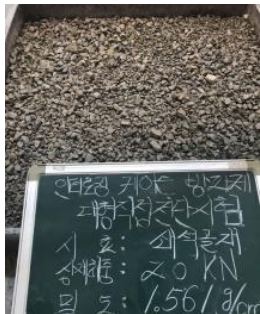 인터로킹 케이슨 방파제
대형직접전단시험
시 료 : 쇄석골재
상재하중 : 20 KN
밀 도 : 1.561 g/cm